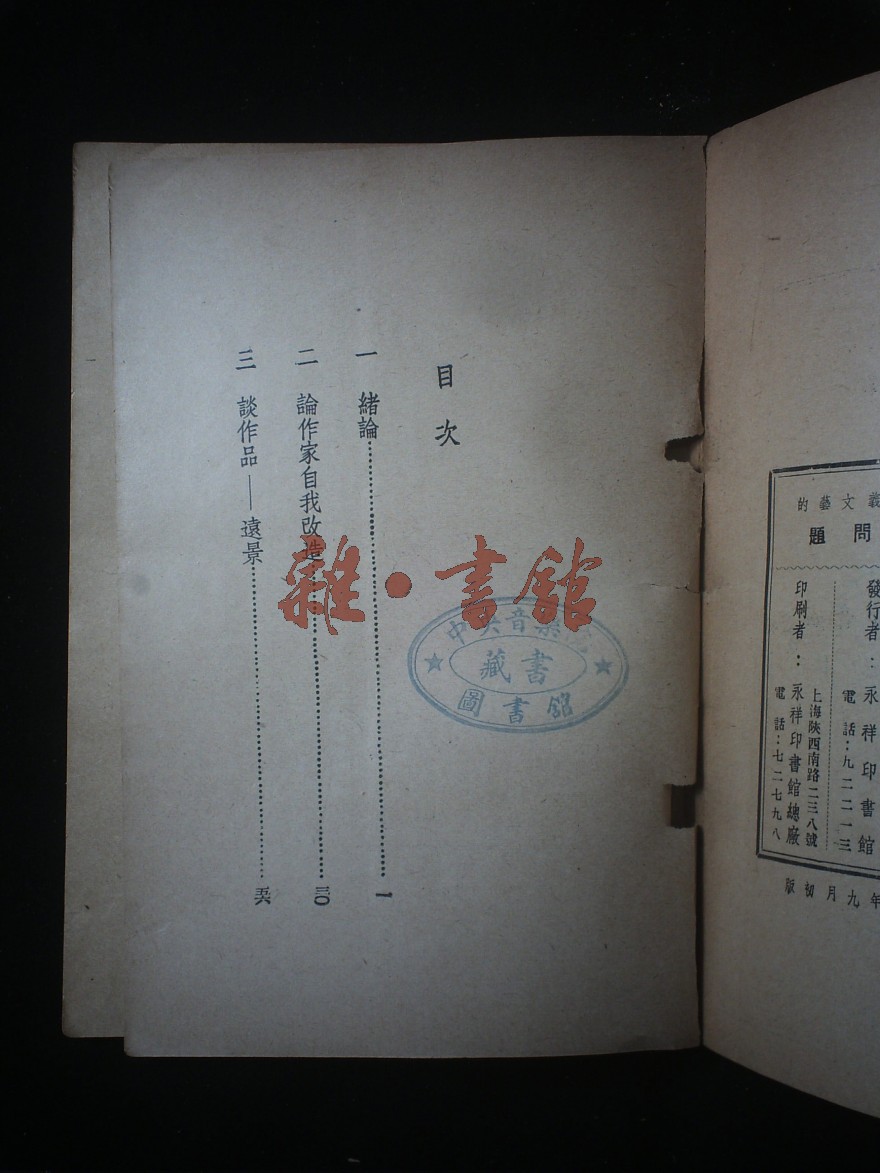 目次
一 緒論 一
二 論作家自我改造 三〇
三 談作品——遠景 五六
雜·書館
中央音樂
藏書
圖書館
義文藝的
問題
發行者：永祥印書館
電話：九二二一三
上海陝西南路二三八號
印刷者：永祥印書館總廠
電話：七二七九八
年九月初版